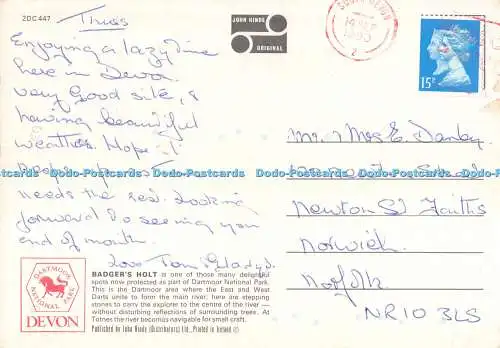 2DC447
Thurs
JOHN HINDE
ORIGINAL
15P
Enjoying a lazy time
here in Devon
very good site, &
having beautiful
weather. Hope it
keeps up
needs the rest. Looking
forward to seeing you
end of month.
love Tom & Gladys.
Mr & Mrs E. Danby
Newton St Faiths
Norwich
Norfolk
NR10 3LS
Dodo-Postcards Dodo-Postcards Dodo-Postcards Dodo-Postcards
DARTMOOR
NATIONAL PARK
DEVON
BADGER'S HOLT is one of those many delightful
spots now protected as part of Dartmoor National Park.
This is the Dartmoor area where the East and West
Darts unite to form the main river: here are stepping
stones to carry the explorer to the centre of the river —
without disturbing reflections of surrounding trees. At
Totnes the river becomes navigable for small craft.
Published by John Hinde (Distributors) Ltd., Printed in Ireland